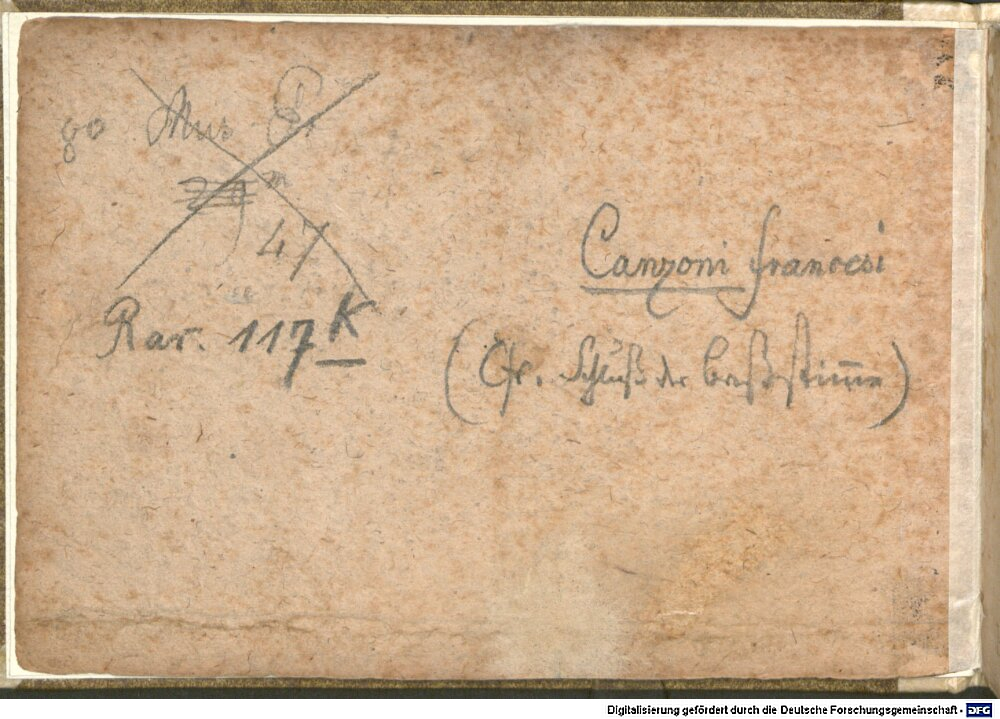 80 Mus. Pr.
47
Rar. 117 K
Canzoni francesi
(Cfr. Schluß der Baßstimme)
Digitalisierung gefördert durch die Deutsche Forschungsgemeinschaft - DFG